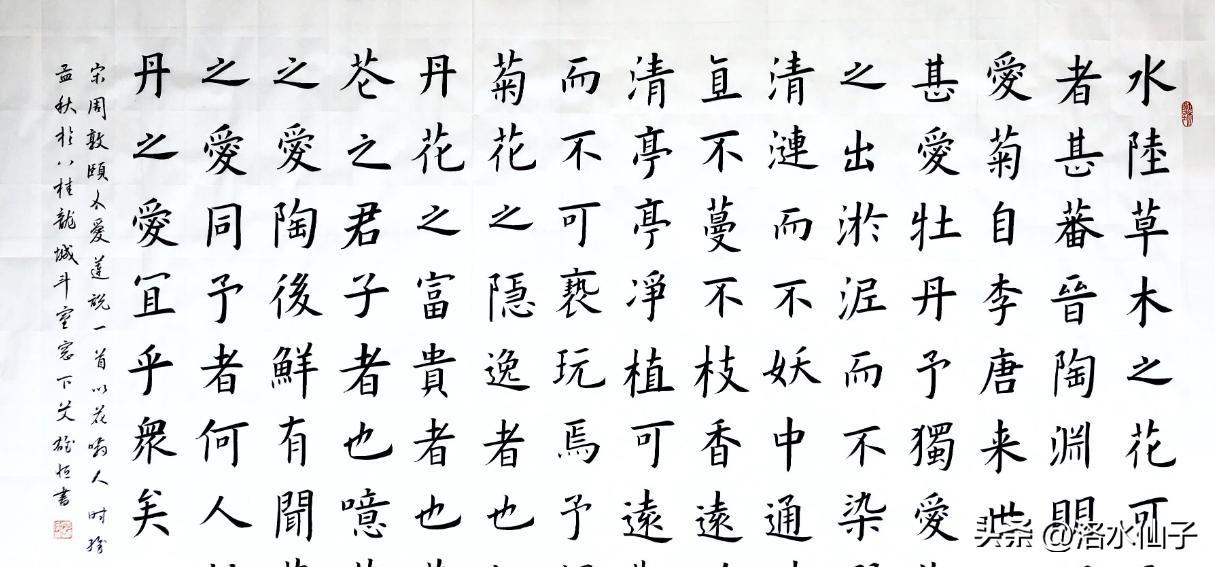 水陸草木之花可
者甚蕃晉陶淵明
愛菊自李唐来世
甚愛牡丹予獨愛
之出淤泥而不染
清漣而不妖中通
直不蔓不枝香遠
清亭亭凈植可遠
而不可褻玩焉予
菊花之隠逸者也
丹花之富貴者也
花之君子者也噫
之愛陶後鮮有聞
之愛同予者何人
丹之愛宜乎衆矣
宋周敦頤水愛蓮説一首以花喻人时
孟秋於八桂龍城斗室窓下
書
头条@洛水仙子